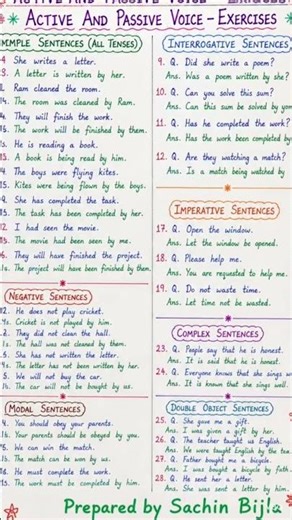 ACTIVE AND PASSIVE VOICE – EXERCISES
IMPLE SENTENCES (ALL TENSES)
She writes a letter.
A letter is written by her.
Ram cleaned the room.
The room was cleaned by Ram.
They will finish the work.
The work will be finished by them.
He is reading a book.
A book is being read by him.
The boys were flying kites.
Kites were being flown by the boys.
She has completed the task.
The task has been completed by her.
I had seen the movie.
The movie had been seen by me.
They will have finished the project.
The project will have been finished by them.
NEGATIVE SENTENCES
He does not play cricket.
Cricket is not played by him.
They did not clean the hall.
The hall was not cleaned by them.
She has not written the letter.
The letter has not been written by her.
We will not buy the car.
The car will not be bought by us.
MODAL SENTENCES
You should obey your parents.
Your parents should be obeyed by you.
We can win the match.
The match can be won by us.
He must complete the work.
The work must be completed by him.
INTERROGATIVE SENTENCES
9. Q. Did she write a poem?
Ans. Was a poem written by she?
10. Q. Can you solve this sum?
Ans. Can this sum be solved by
11. Q. Has he completed the work?
Ans. Has the work been completed by
12. Q. Are they watching a match?
Ans. Is a match being watched by
IMPERATIVE SENTENCES
17. Q. Open the window.
Ans. Let the window be opened.
18. Q. Please help me.
Ans. You are requested to help me.
19. Q. Do not waste time.
Ans. Let time not be wasted.
COMPLEX SENTENCES
23. Q. People say that he is honest.
Ans. It is said that he is honest.
24. Q. Everyone knows that she sings
Ans. It is known that she sings well.
DOUBLE OBJECT SENTENCES
25. Q. She gave me a gift.
Ans. I was given a gift by her.
26. Q. The teacher taught us English.
Ans. We were taught English by the
27. Q. Father bought me a bicycle.
Ans. I was bought a bicycle by
28. Q. He sent her a letter.
Ans. She was sent a letter by him.
Prepared by Sachin Bijla